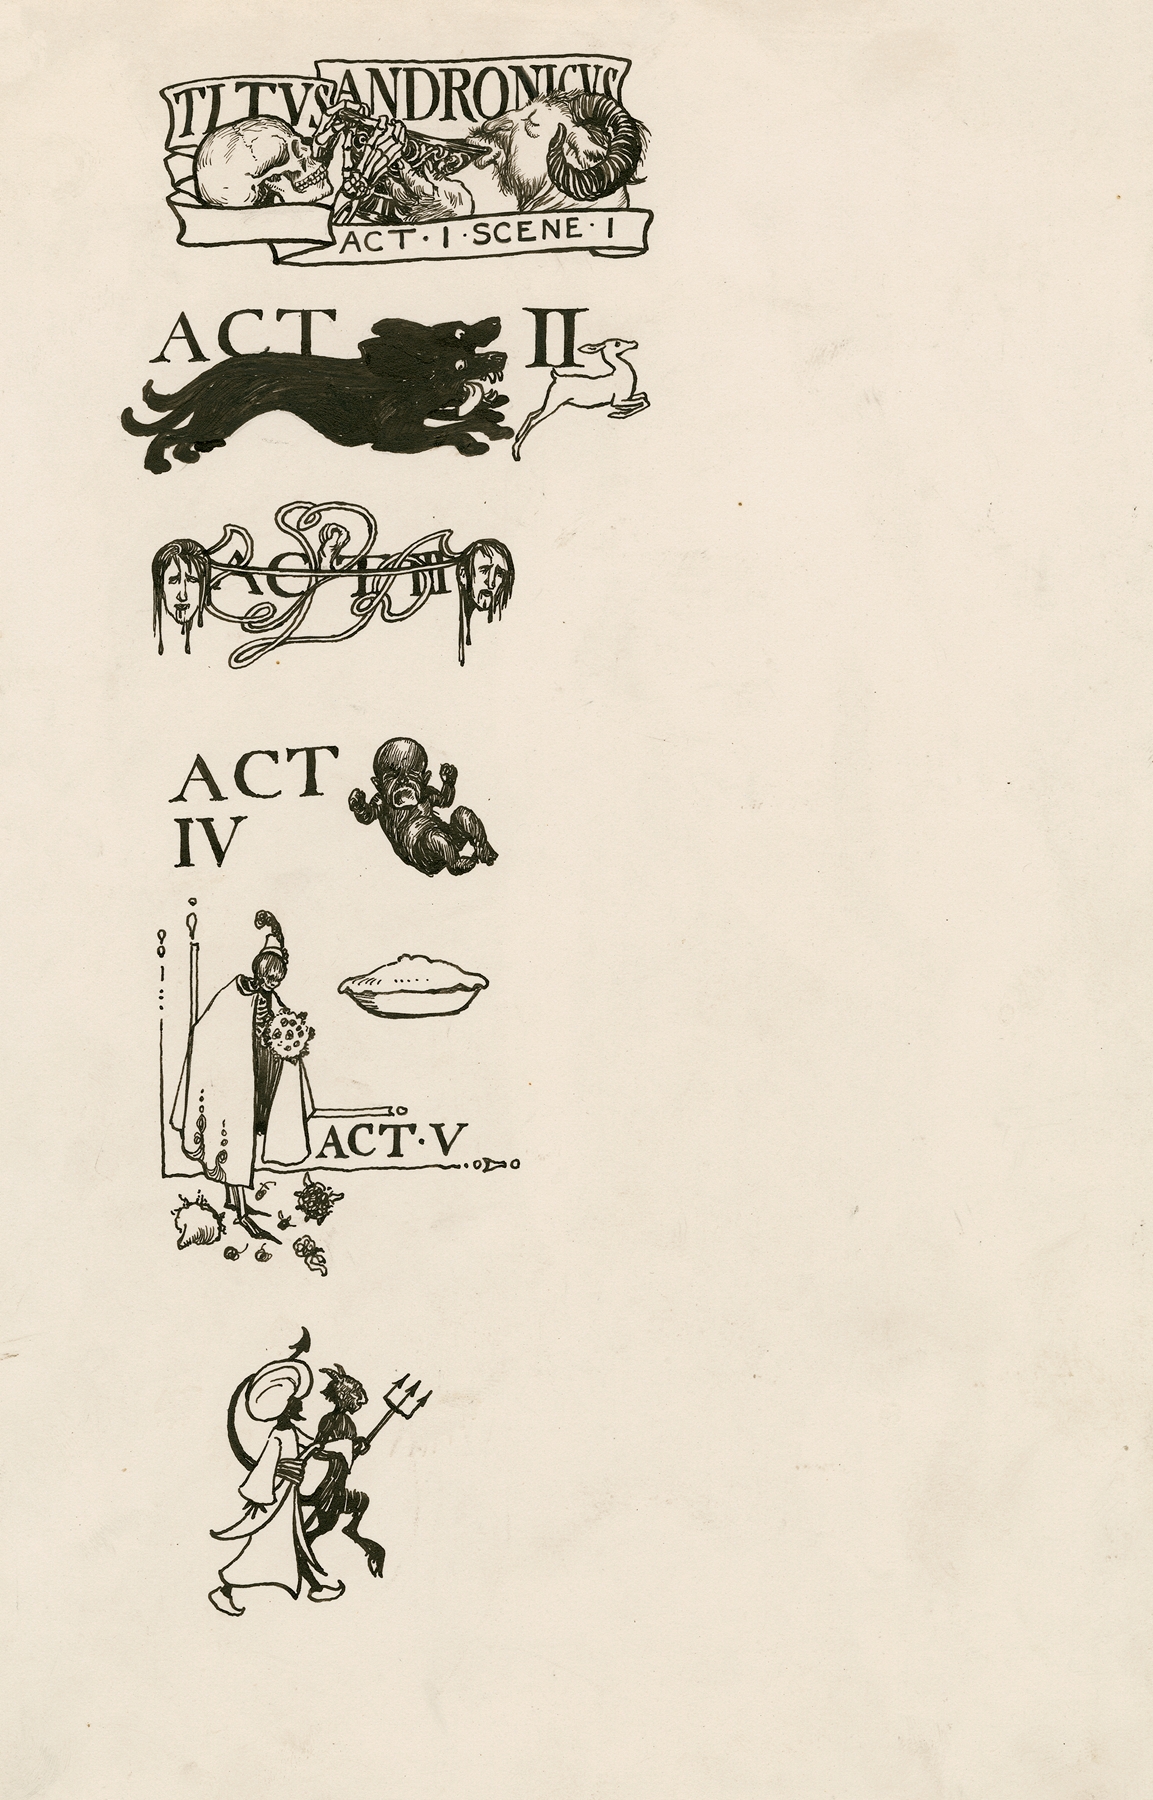 TITVS ANDRONICVS
ACT·I·SCENE·I
ACT II
ACT III
ACT
IV
ACT·V